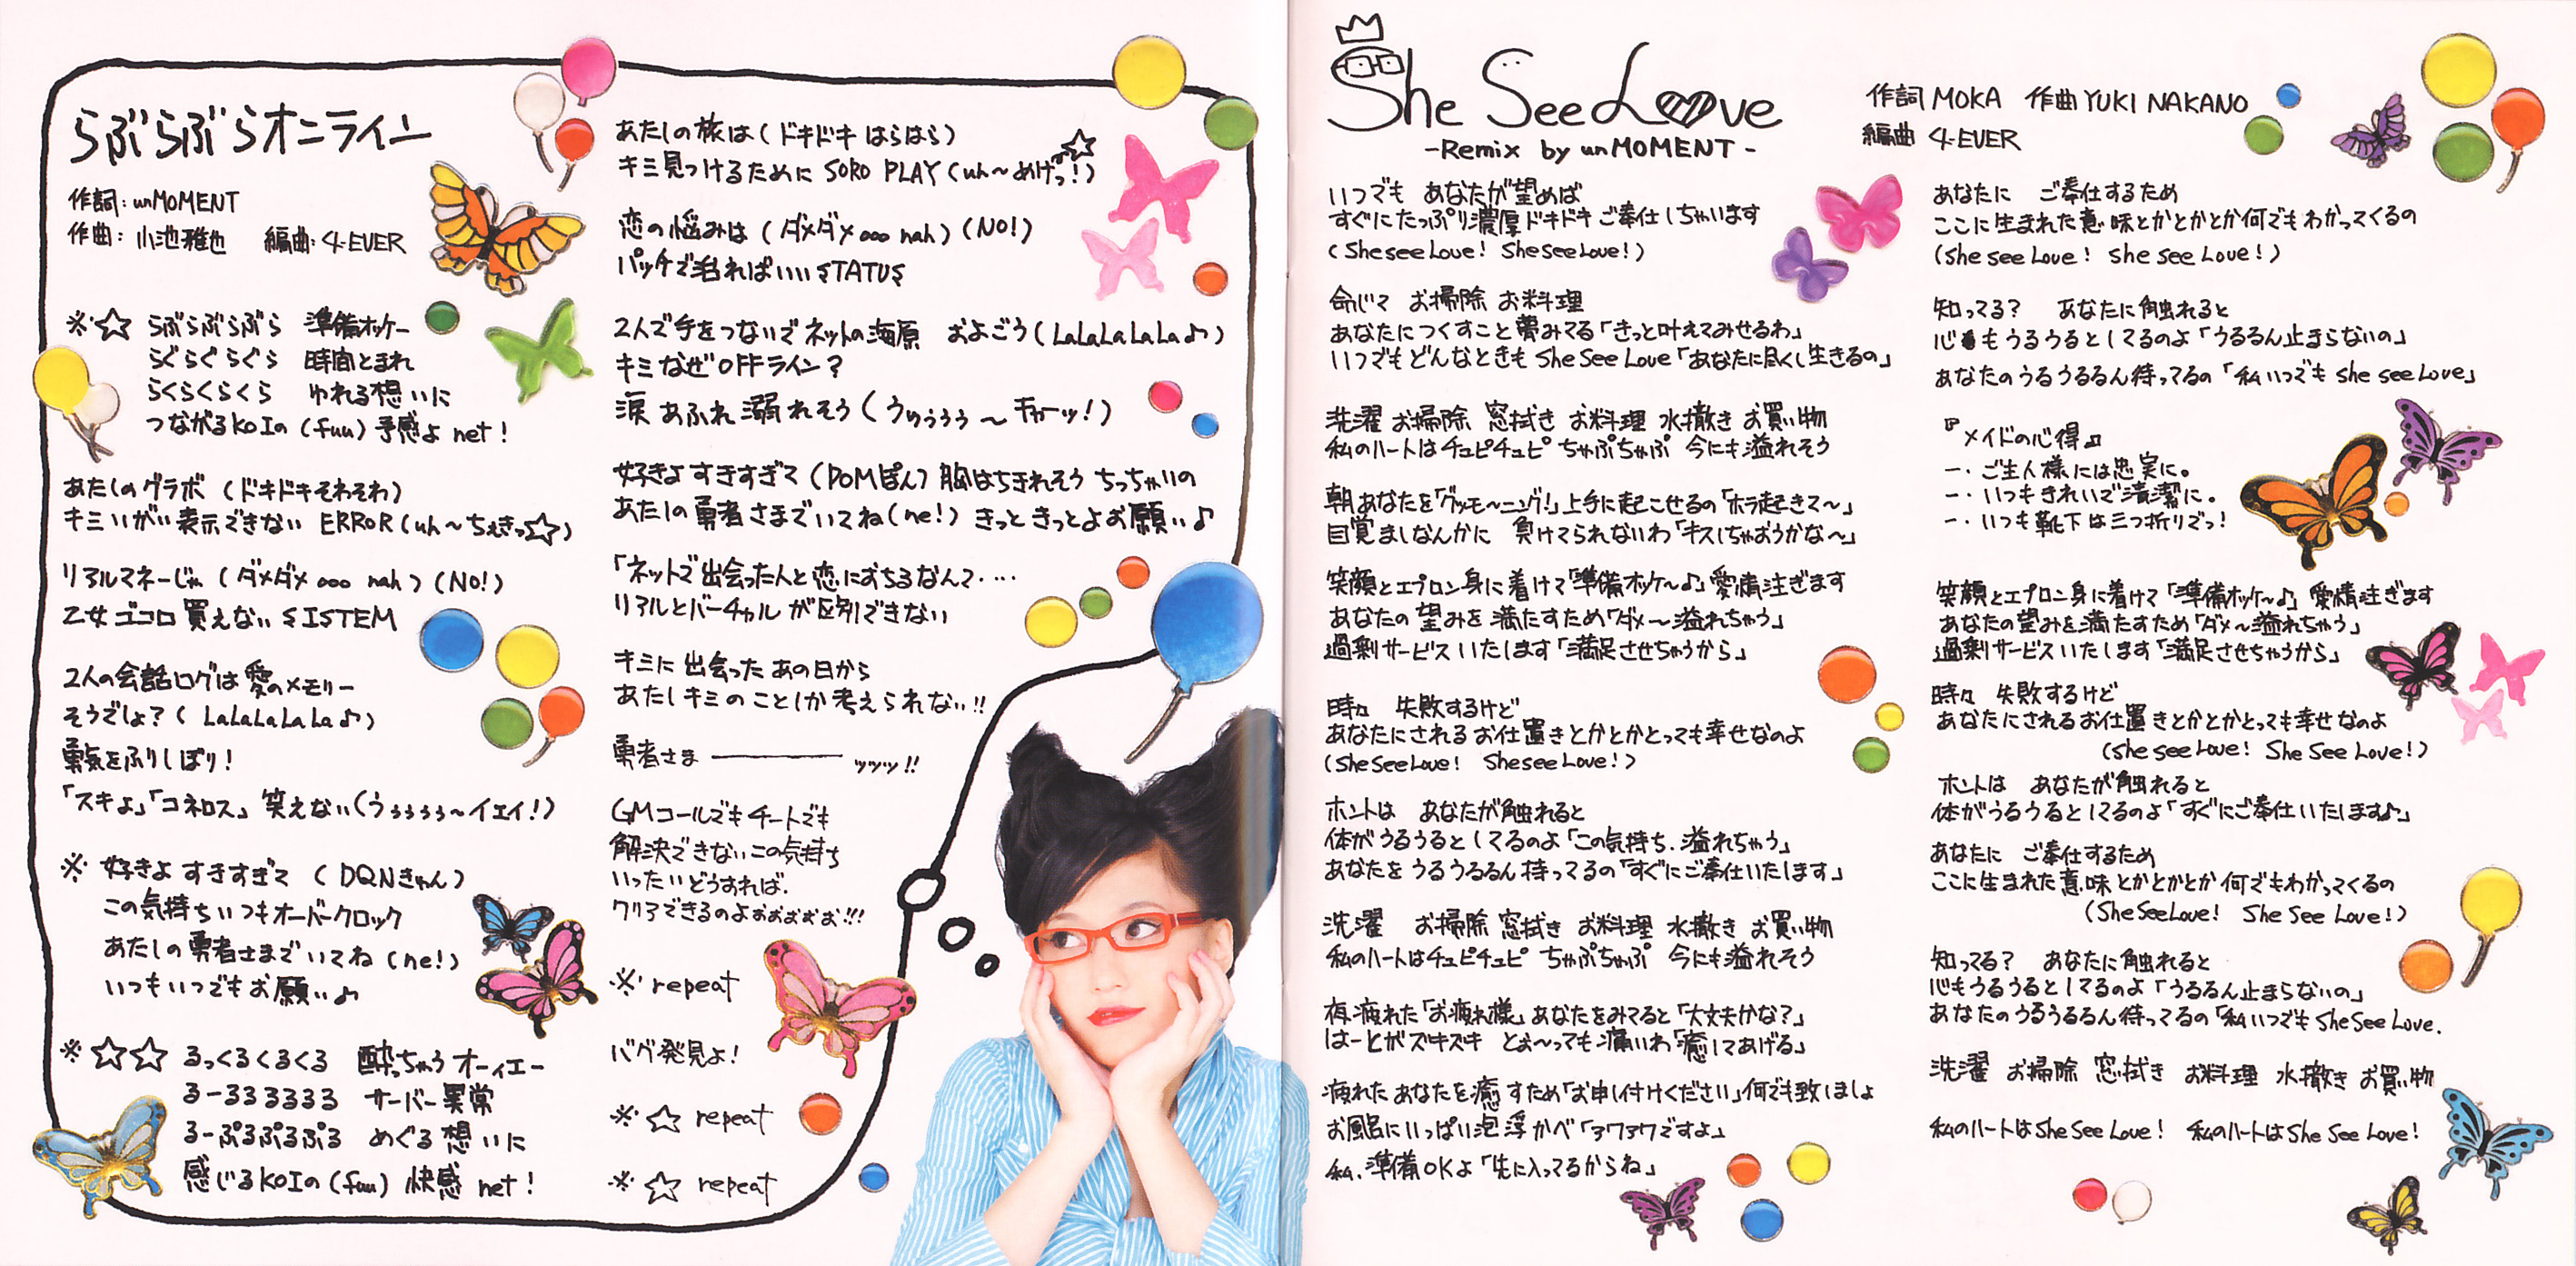 らぶらぶらオンライン
作詞：unMOMENT
作曲：小池雅也　編曲：4-EVER
※☆ らぶらぶらぶら　準備オッケー
らぐらぐらぐら　時間とまれ
らくらくらくら　ゆれる想いに
つながるKOIの（fuu）予感よ net！
あたしのグラボ（ドキドキそわそわ）
キミいがい表示できない ERROR（uh～ちぇきっ☆）
リアルマネーじゃ（ダメダメ ooo nah）（NO!）
乙女ゴコロ買えない SISTEM
2人の会話ログは愛のメモリー
そうでしょ？（LaLaLaLaLa♪）
勇気をふりしぼり！
「スキよ」「コネロス」笑えない（うぅぅぅぅ～イエイ！）
※ 好きよ すきすぎて（DQNきゅん）
この気持ちいつもオーバークロック
あたしの勇者さまでいてね（ne!）
いつもいつでもお願い♪
※☆☆ るっくるくるくる　酔っちゃうオーイエー
るーるるるるるる　サーバー異常
るーぷるぷるぷる　めぐる想いに
感じるKOIの（fuu）快感 net！
あたしの旅は（ドキドキ はらはら）
キミ見つけるために SORO PLAY（uh～めげっ☆！）
恋の悩みは（ダメダメ ooo nah）（NO!）
パッチで治ればいい STATUS
2人で手をつないで ネットの海原　およごう（LaLaLaLaLa♪）
キミなぜOFFライン？
涙あふれ溺れそう（うぅぅぅぅ～キャーッ！）
好きよすきすぎて（POMぽん）胸はちきれそう ちっちゃいの
あたしの勇者さまでいてね（ne!）きっときっとよお願い♪
「ネットで出会った人と恋におちるなんて‥‥
リアルとバーチャルが区別できない
キミに出会ったあの日から
あたしキミのことしか考えられない!!
勇者さま――――ッッッ!!
GMコールでもチートでも
解決できないこの気持ち
いったいどうすれば.
クリアできるのよぉぉぉぉぉ!!!
※ repeat
バグ発見よ！
※☆ repeat
※☆ repeat
She See Love
-Remix by unMOMENT-
作詞 MOKA　作曲 YUKI NAKANO
編曲 4-EVER
いつでも　あなたが望めば
すぐにたっぷり濃厚ドキドキご奉仕しちゃいます
（She see Love！ She see Love！）
命じて　お掃除 お料理
あなたにつくすこと夢みてる「きっと叶えてみせるわ」
いつでもどんなときも She See Love「あなたに尽くし生きるの」
洗濯 お掃除 窓拭き お料理 水撒き お買い物
私のハートはチュピチュピ ちゃぷちゃぷ 今にも溢れそう
朝あなたを「グッモ～ニング!」上手に起こせるの「ホラ起きて～」
目覚ましなんかに　負けてられないわ「キスしちゃおうかな～」
笑顔とエプロン身に着けて「準備オッケ～♪」愛情注ぎます
あなたの望みを満たすため「ダメ～溢れちゃう」
過剰サービスいたします「満足させちゃうから」
時々　失敗するけど
あなたにされるお仕置きとかとかとっても幸せなのよ
（She See Love！　She see Love！）
ホントは　あなたが触れると
体がうるうるとしてるのよ「この気持ち.溢れちゃう」
あなたをうるうるるん持ってるの「すぐにご奉仕いたします」
洗濯　お掃除 窓拭き お料理 水撒き お買い物
私のハートはチュピチュピ ちゃぷちゃぷ 今にも溢れそう
夜.疲れた「お疲れ様」あなたをみてると「大丈夫かな？」
はーとがズキズキ とぉ～っても痛いわ「癒してあげる」
疲れたあなたを癒すため「お申し付けください」何でも致しましょ
お風呂にいっぱい泡浮かべ「アワアワですよ」
私.準備OKよ「先に入ってるからね」
あなたに　ご奉仕するため
ここに生まれた意味とかとかとか何でもわかってくるの
（She see Love！ she see Love！）
知ってる？　あなたに触れると
心もうるうるとしてるのよ「うるるん止まらないの」
あなたのうるうるるん待ってるの「私いつでも She see Love」
『メイドの心得』
一・ご主人様には忠実に。
一・いつもきれいで清潔に。
一・いつも靴下は三つ折りでっ！
笑顔とエプロン身に着けて「準備オッケ～♪」愛情注ぎます
あなたの望みを満たすため「ダメ～溢れちゃう」
過剰サービスいたします「満足させちゃうから」
時々　失敗するけど
あなたにされるお仕置きとかとかとっても幸せなのよ
（She see Love！ She See Love！）
ホントは　あなたが触れると
体がうるうるとしてるのよ「すぐにご奉仕いたします♪」
あなたに　ご奉仕するため
ここに生まれた意味とかとかとか何でもわかってくるの
（She See Love！　She See Love！）
知ってる？　あなたに触れると
心もうるうるとしてるのよ「うるるん止まらないの」
あなたのうるうるるん待ってるの「私いつでもShe See Love.
洗濯　お掃除　窓拭き　お料理　水撒き　お買い物
私のハートはShe See Love！　私のハートはShe See Love！